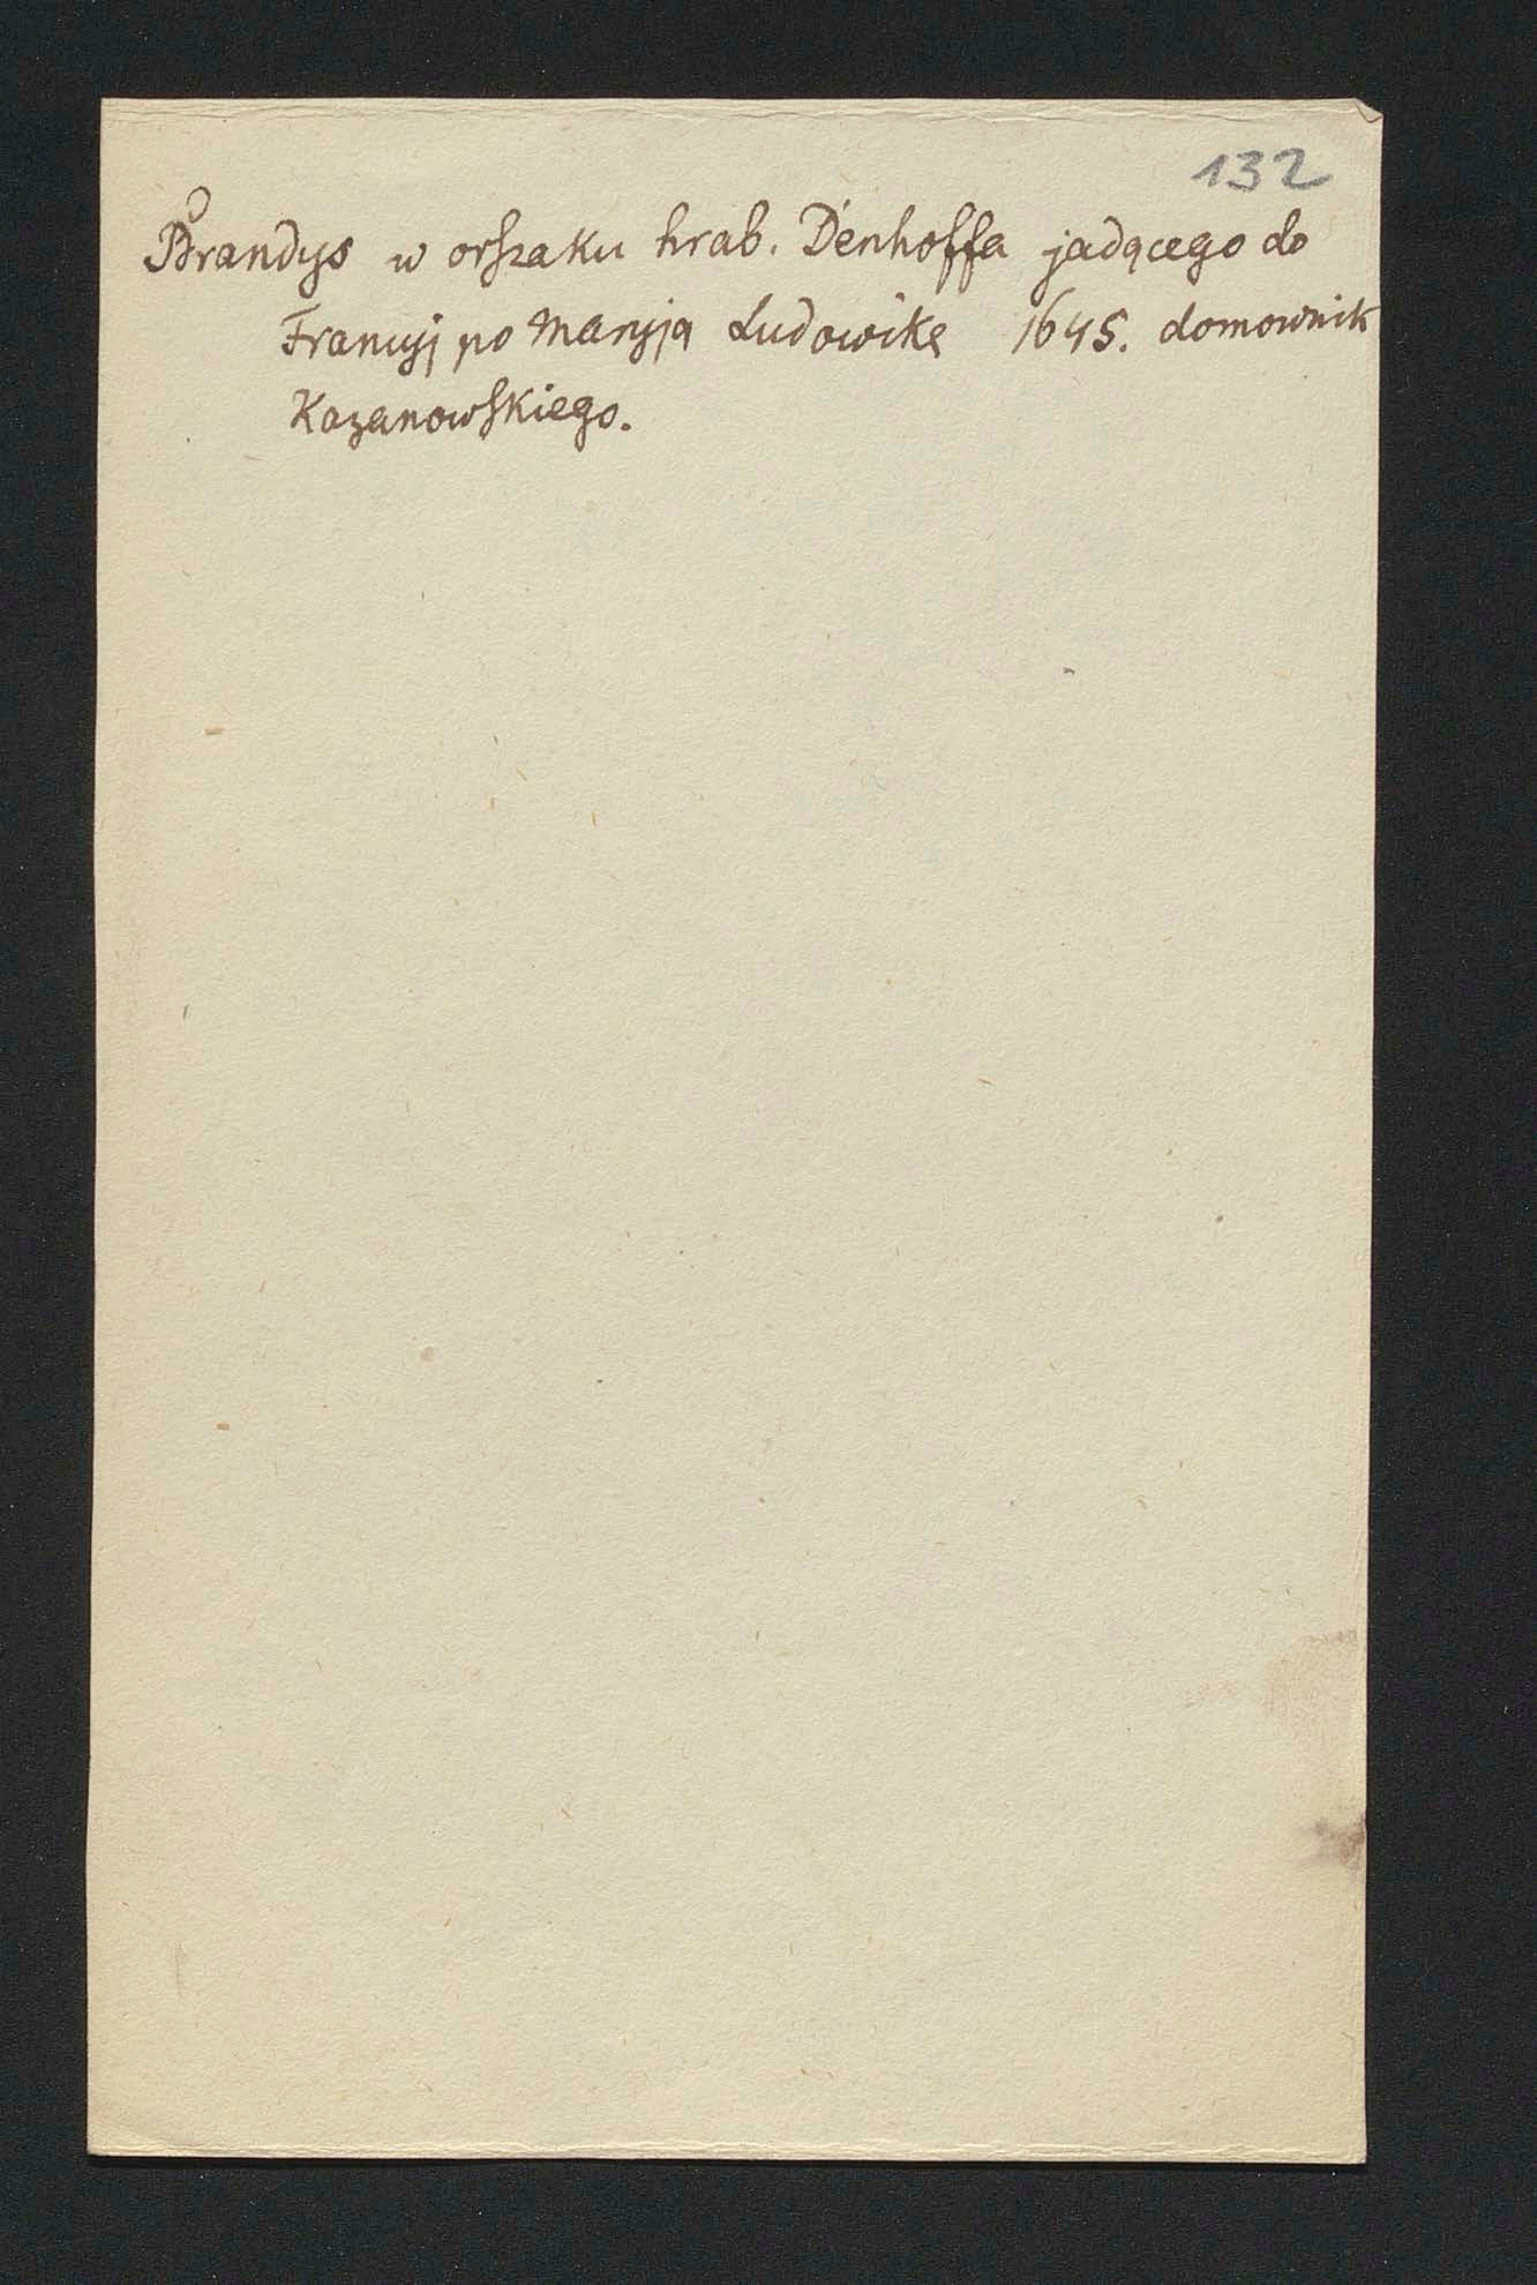 132
Brandys w orszaku hrab. Dënhoffa jadącego do
Francyj po Maryją Ludowikę 1645. domownik
Kazanowskiego.